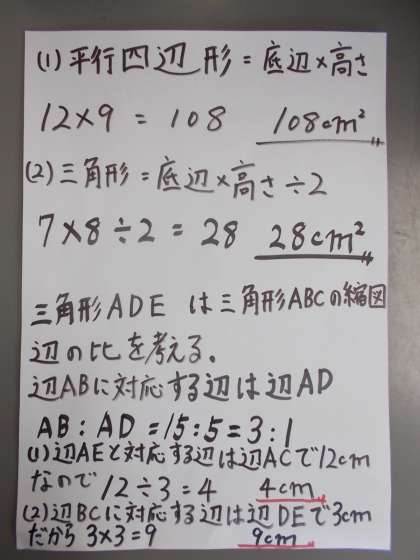 (1) 平行四辺形 = 底辺×高さ
12×9 = 108 108cm²
(2) 三角形 = 底辺×高さ÷2
7×8÷2 = 28 28cm²
三角形ADE は三角形ABCの縮図
辺の比を考える。
辺ABに対応する辺は辺AD
AB:AD =15:5=3:1
(1)辺AEと対応する辺は辺ACで12cm
なので 12÷3=4 4cm
(2)辺BCに対応する辺は辺DEで3cm
だから 3×3=9 9cm